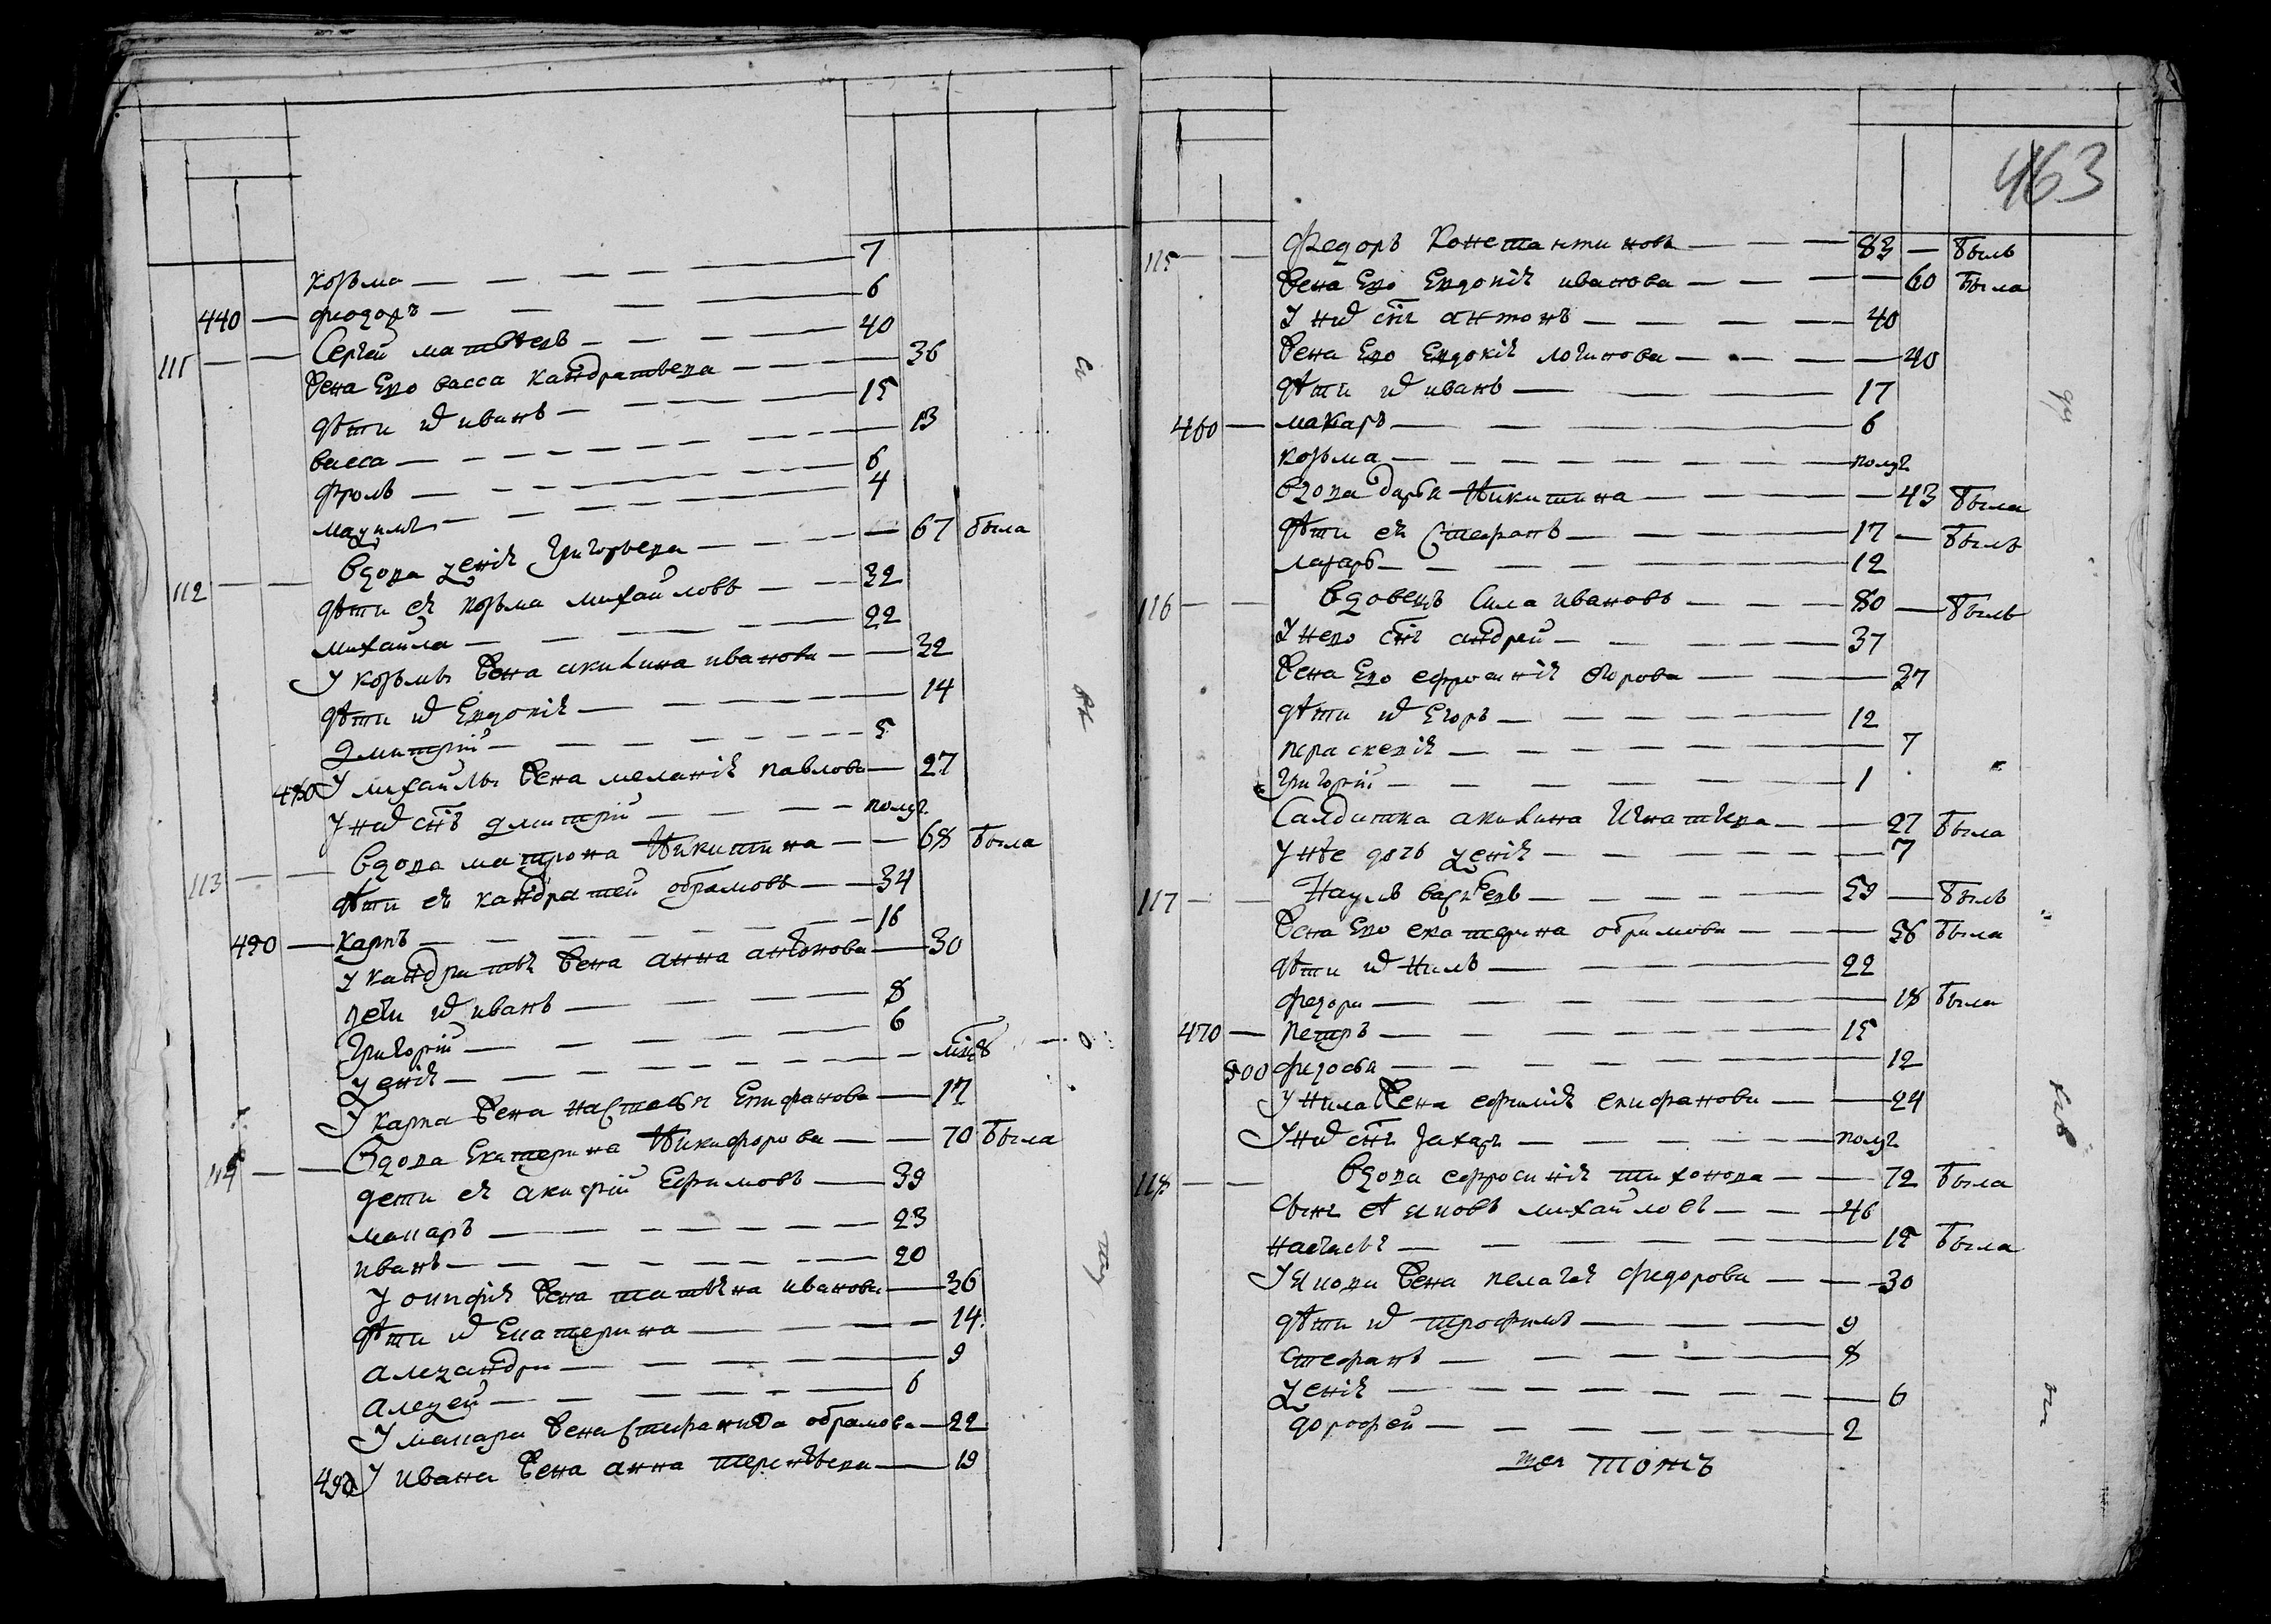 козьма 7
440 фиодоръ 6
111 Сергей матвѣевъ 40
жена Ево васса кандратьева 36
дѣти ихъ иванъ 15
васса 13
фролъ 6
мазимъ 4
112 вдова ѯенiя григорьева 67 была
дѣти ея козьма михайловъ 32
михайла 22
У козьмы жена акилина иванова 32
дѣти ихъ Евдокiя 14
дмитрiй 5
480 У михайлы жена меланiя павлова 27
У них снъ дмитрiй полуг.
113 вдова матрона Никитина 68 была
дѣти ея кандратей обрамовъ 34
490 карпъ 16
У кандратья жена анна антонова 30
дети их иванъ 8
Григорiй 6
ѯенiя мѣц 8
У карпа жена настасья Епифанова 17
114 Вдова Екатерина Никифорова 70 была
дети ея акифiй Ефимовъ 39
макаръ 23
иванъ 20
У онифiя жена татьяна иванова 36
дѣти их Екатерина 14
алеѯандра 9
алеѯей 6
У макара жена Стефанида обрамова 22
490 У ивана жена анна терентьева 19
463
115 Федоръ Константиновъ 83 былъ
жена Ево Евдокiя иванова 60 была
У них снъ антонъ 40
жена Ево Евдокiя логинова 40
дѣти их иванъ 17
460 макаръ 6
козьма полуг.
вдова дарья Никитина 43 была
дѣти ея Стефанъ 17 былъ
лазарь 12
116 Вдовецъ Сила ивановъ 80 былъ
У нево снъ андрей 37
жена Ево ефросинiя егорова 37
дѣти их Егоръ 12
парасковiя 7
Григорiй 1
Салдатка акилина Игнатьева 27 была
У нѣе дочь ѯенiя 7
117 Наумъ васильевъ 59 былъ
жена Ево екатерина обрамова 56 была
дѣти их Нилъ 22
федора 18 была
470 Петръ 15
500 федосья 12
У Нила жена ефимiя епифанова 24
У них снъ Захаръ полуг.
118 Вдова ефросинiя тихонова 72 была
Сынъ ея яковъ михайловъ 46
настасья 15 была
У якова жена пелагея федорова 30
дѣти их трофимъ 9
стефанъ 8
ѯенiя 6
дорофей 2
тожъ